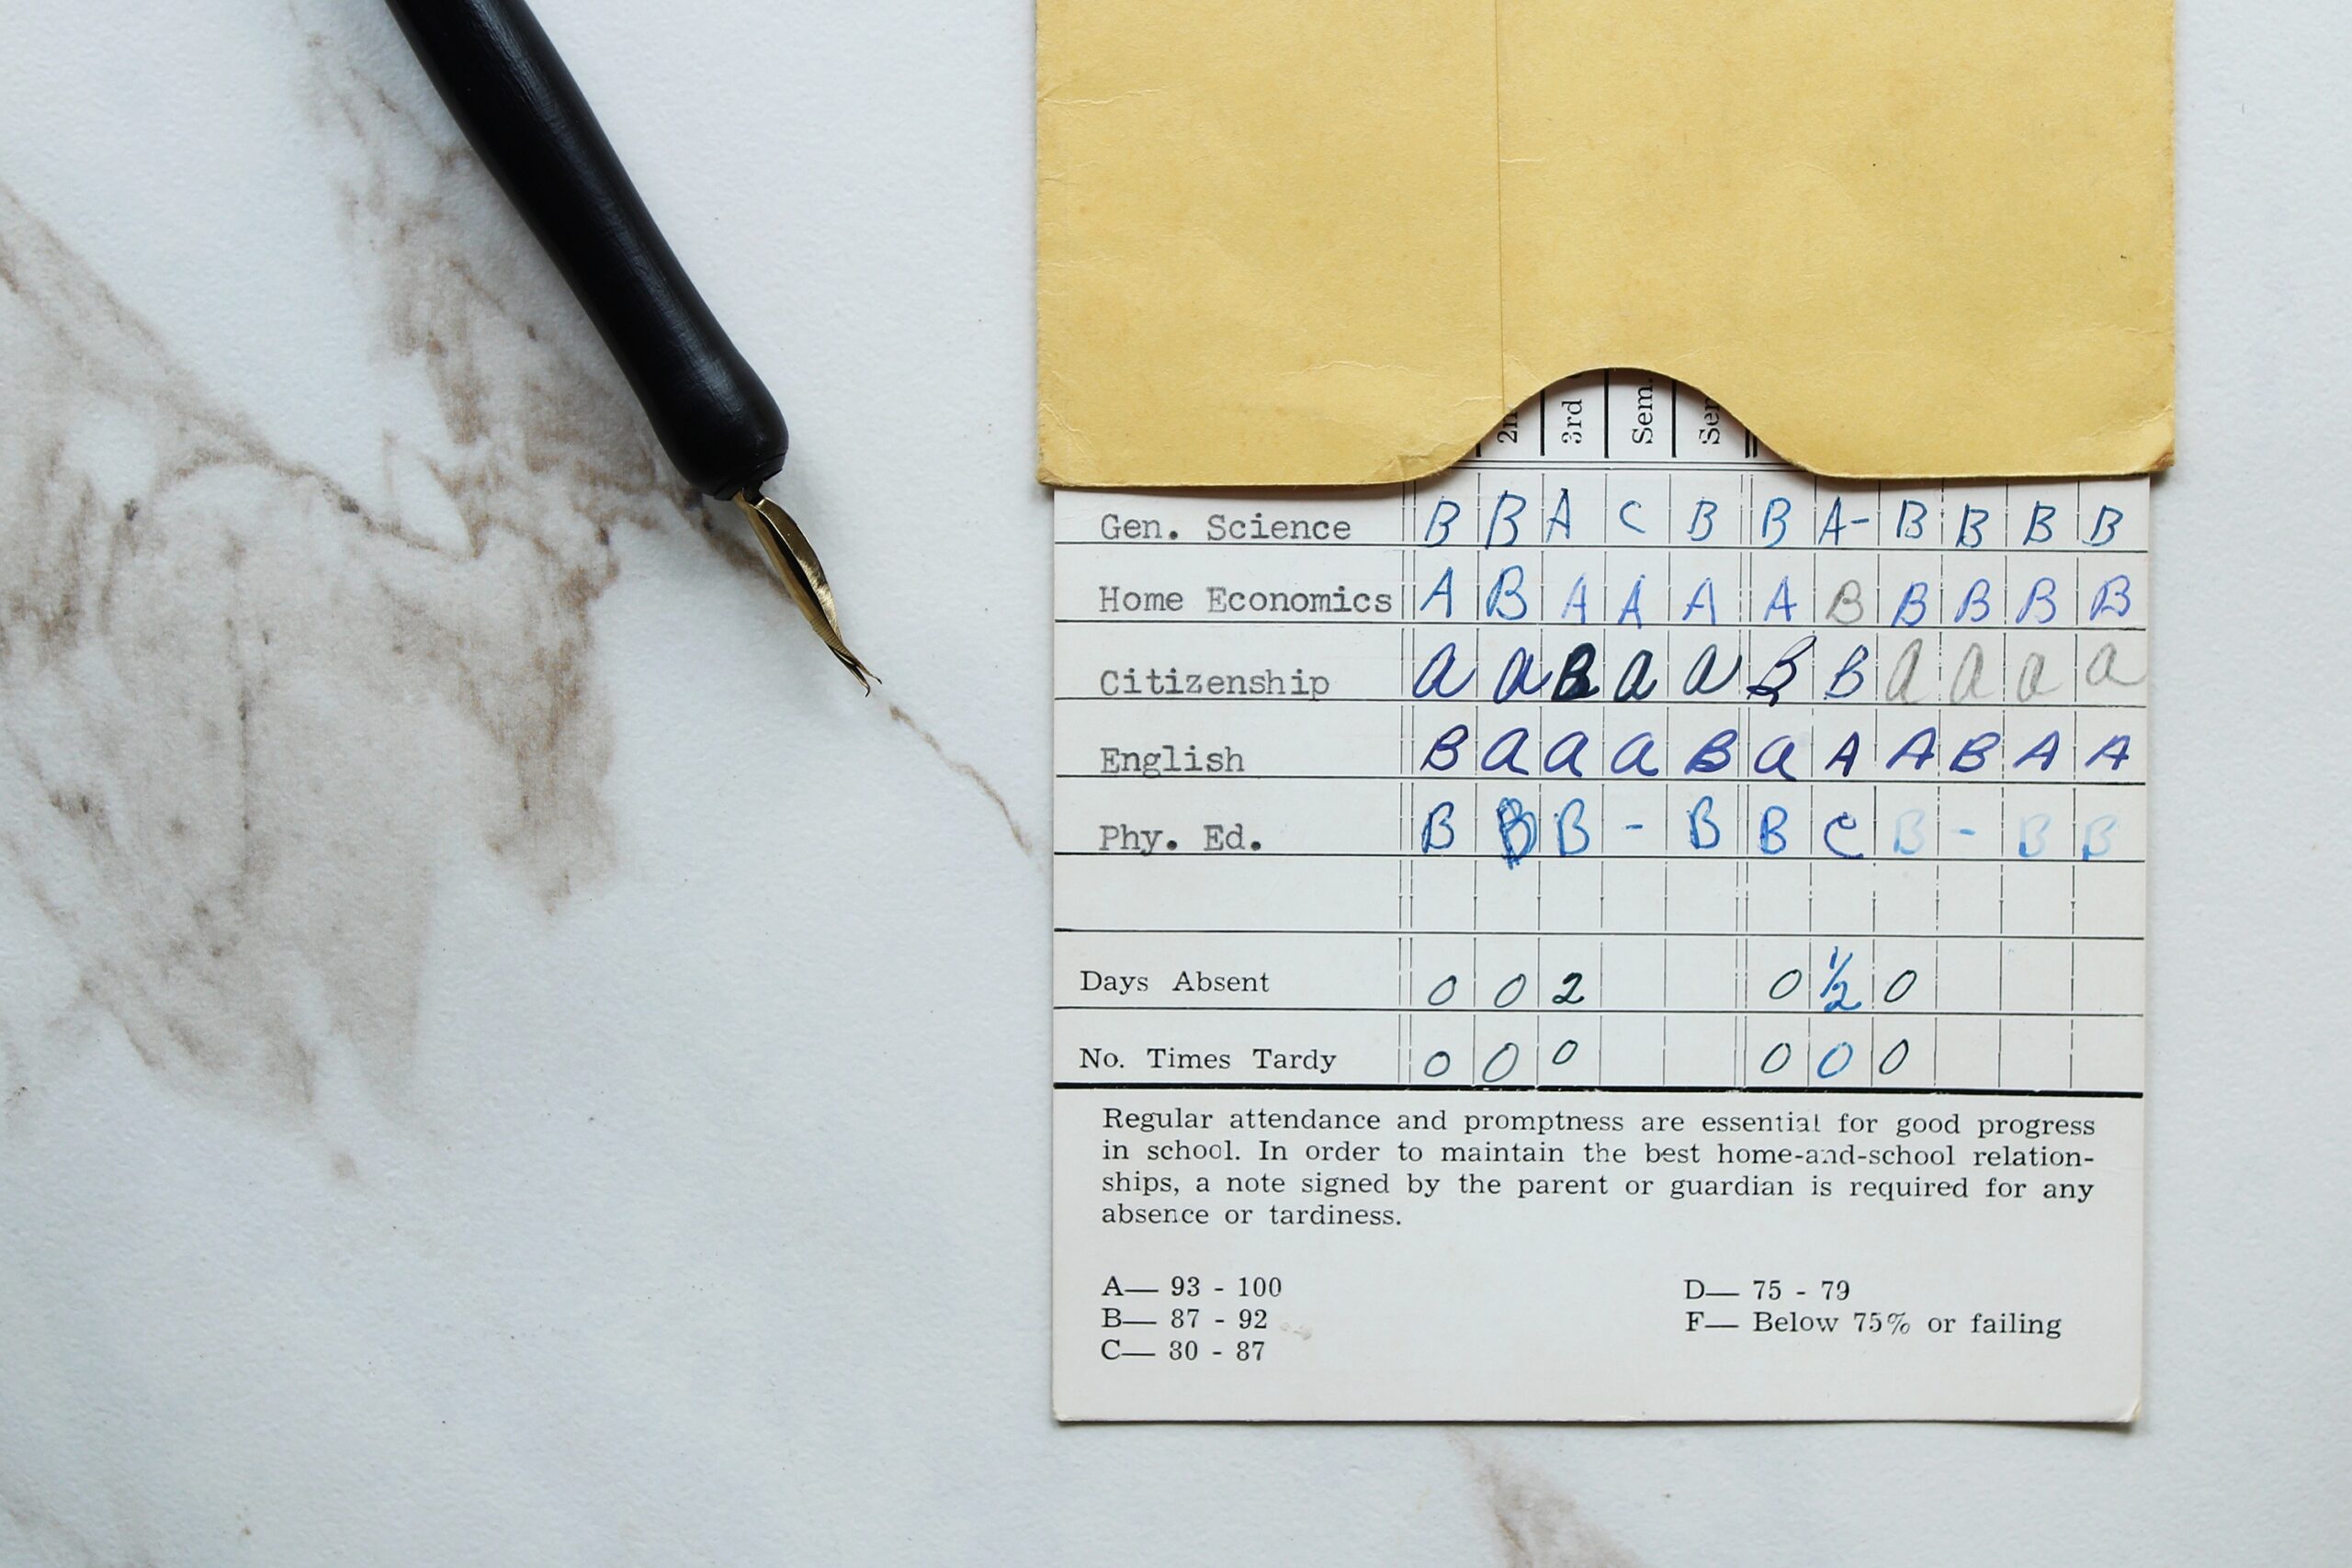 3rd Sem.
Gen. Science B B A C B B A- B B B B
Home Economics A B A A A A B B B B B
Citizenship a a B a a B B a a a a
English B a a a B a A A B A A
Phy. Ed. B B B - B B C B - B B
Days Absent 0 0 2 0 1/2 0
No. Times Tardy 0 0 0 0 0 0
Regular attendance and promptness are essential for good progress
in school. In order to maintain the best home-and-school relation-
ships, a note signed by the parent or guardian is required for any
absence or tardiness.
A— 93 - 100 D— 75 - 79
B— 87 - 92 F— Below 75% or failing
C— 80 - 87